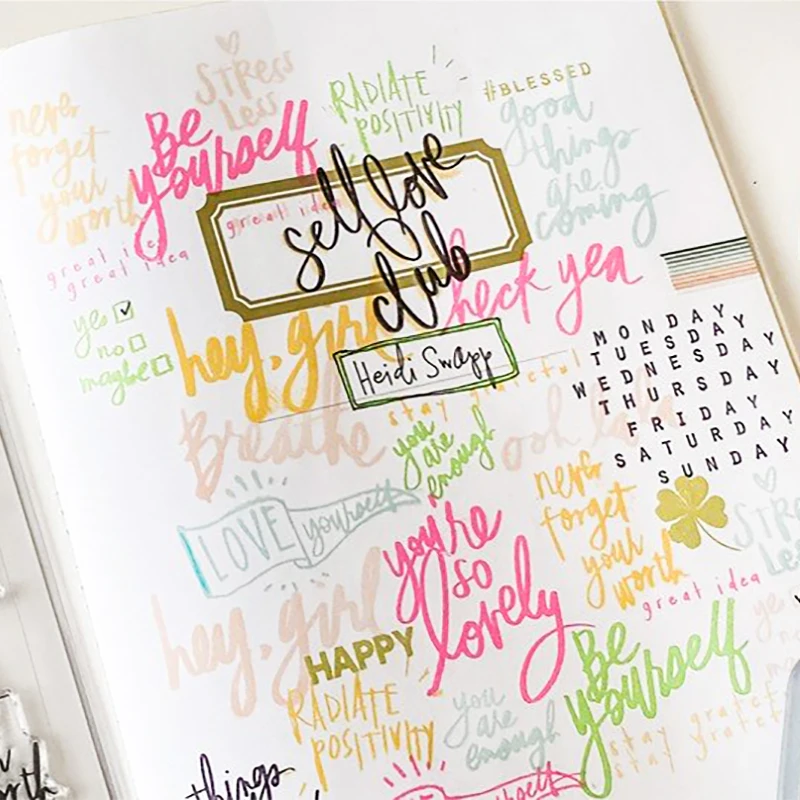 Stress
Less
RADIATE
POSITIVITY
#BLESSED
never
forget
your
worth
Be
yourself
good
things
are
coming
great idea
self love
club
great
great idea
heck yea
yes
no
maybe
hey, girl
Heidi Swapp
MONDAY
TUESDAY
WEDNESDAY
THURSDAY
FRIDAY
SATURDAY
SUNDAY
stay grateful
Breathe
you
are
enough
ooh lala
LOVE yourself
never
forget
your
worth
Stress
Less
you're
so
lovely
great idea
hey, girl
HAPPY
Be
yourself
RADIATE
POSITIVITY
you
are
enough
stay grateful
stay grateful
things
yourself